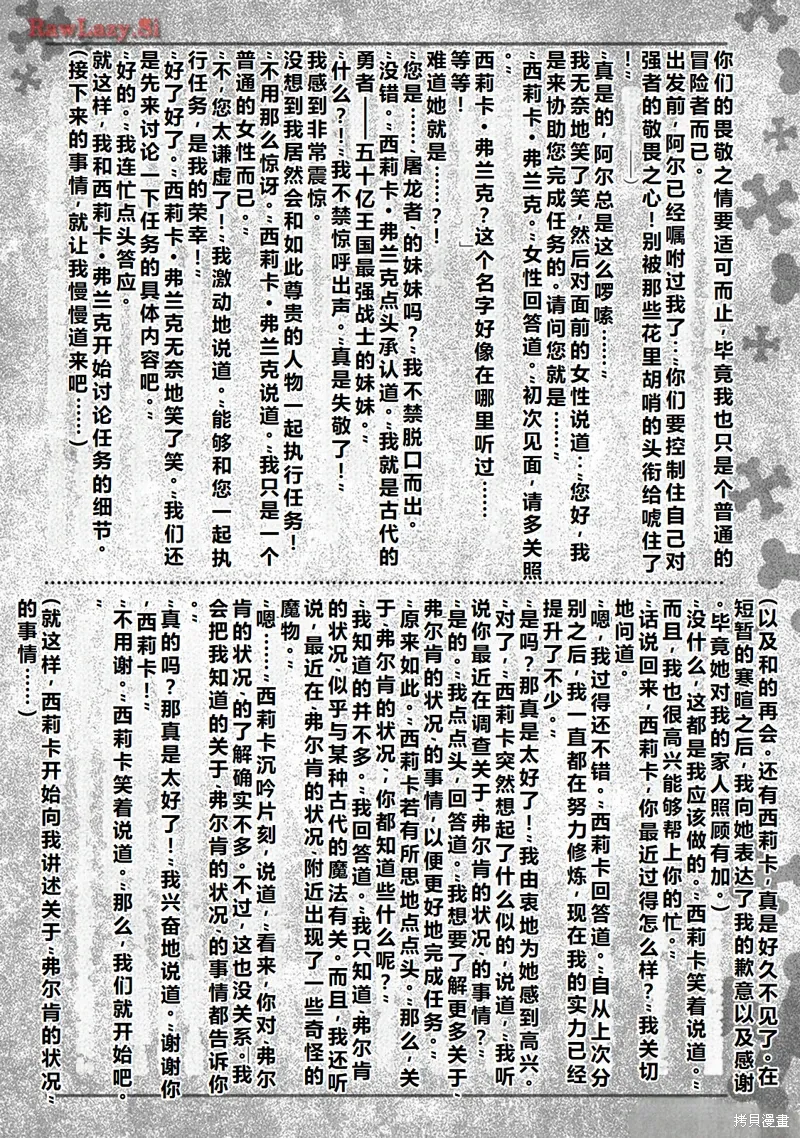 RawLazy.Si
你们的畏敬之情要适可而止，毕竟我也只是个普通的
冒险者而已。
出发前，阿尔已经嘱咐过我了：“你们要控制住自己对
强者的敬畏之心！别被那些花里胡哨的头衔给唬住了
！”
（————）
“真是的，阿尔总是这么啰嗦……”
我无奈地笑了笑，然后对面前的女性说道：“您好，我
是来协助您完成任务的。请问您就是……”
“西莉卡·弗兰克。”女性回答道。“初次见面，请多关照
。”
西莉卡·弗兰克？这个名字好像在哪里听过……
等等！
难道她就是……？！
“您是……‘屠龙者’的妹妹吗？”我不禁脱口而出。
“没错。”西莉卡·弗兰克点头承认道。“我就是古代的
勇者——五十亿王国最强战士的妹妹。”
“什么？！”我不禁惊呼出声。“真是失敬了！”
我感到非常震惊。
没想到我居然会和如此尊贵的人物一起执行任务！
“不用那么惊讶。”西莉卡·弗兰克说道。“我只是一个
普通的女性而已。”
“不，您太谦虚了！”我激动地说道。“能够和您一起执
行任务，是我的荣幸！”
“好了好了。”西莉卡·弗兰克无奈地笑了笑。“我们还
是先来讨论一下任务的具体内容吧。”
“好的。”我连忙点头答应。
就这样，我和西莉卡·弗兰克开始讨论任务的细节。
（接下来的事情，就让我慢慢道来吧……）
（以及和的再会。还有西莉卡，真是好久不见了。在
短暂的寒暄之后，我向她表达了我的歉意以及感谢
。毕竟她对我的家人照顾有加。）
“没什么，这都是我应该做的。”西莉卡笑着说道。“
而且，我也很高兴能够帮上你的忙。”
“话说回来，西莉卡，你最近过得怎么样？”我关切
地问道。
“嗯，我过得还不错。”西莉卡回答道。“自从上次分
别之后，我一直都在努力修炼，现在我的实力已经
提升了不少。”
“是吗？那真是太好了！”我由衷地为她感到高兴。
“对了，”西莉卡突然想起了什么似的，说道，“我听
说你最近在调查关于‘弗尔肯的状况’的事情？”
“是的。”我点点头，回答道。“我想要了解更多关于‘
弗尔肯的状况’的事情，以便更好地完成任务。”
“原来如此。”西莉卡若有所思地点点头。“那么，关
于‘弗尔肯的状况’，你都知道些什么呢？”
“我知道的并不多。”我回答道。“我只知道‘弗尔肯
的状况’似乎与某种古代的魔法有关。而且，我还听
说，最近在‘弗尔肯的状况’附近出现了一些奇怪的
魔物。”
“嗯……”西莉卡沉吟片刻，说道，“看来，你对‘弗尔
肯的状况’的了解确实不多。不过，这也没关系。我
会把我知道的关于‘弗尔肯的状况’的事情都告诉你
。”
“真的吗？那真是太好了！”我兴奋地说道。“谢谢你
，西莉卡！”
“不用谢。”西莉卡笑着说道。“那么，我们就开始吧。
”
（就这样，西莉卡开始向我讲述关于‘弗尔肯的状况’
的事情……）
拷貝漫畫